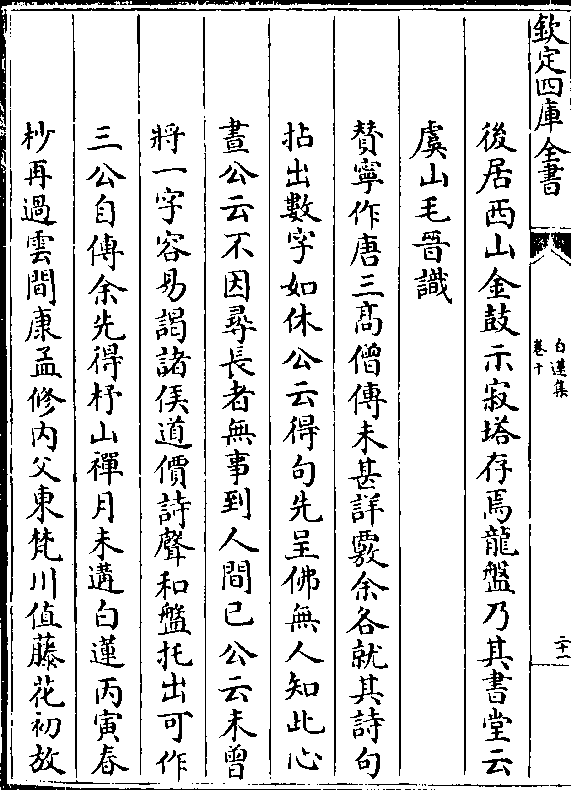 欽定四庫全書
白蓮集
卷十
二十一
後居西山金鼓示寂塔存焉龍盤乃其書堂云
虞山毛晉識
賛寧作唐三髙僧傳未甚詳覈余各就其詩句
拈出數字如休公云得句先呈佛無人知此心
晝公云不因尋長者無事到人間已公云未曾
將一字容易謁諸侯道價詩聲和盤托出可作
三公自傳余先得杼山禪月未遘白蓮丙寅春
杪再過雲間康孟修内父東梵川值藤花初放